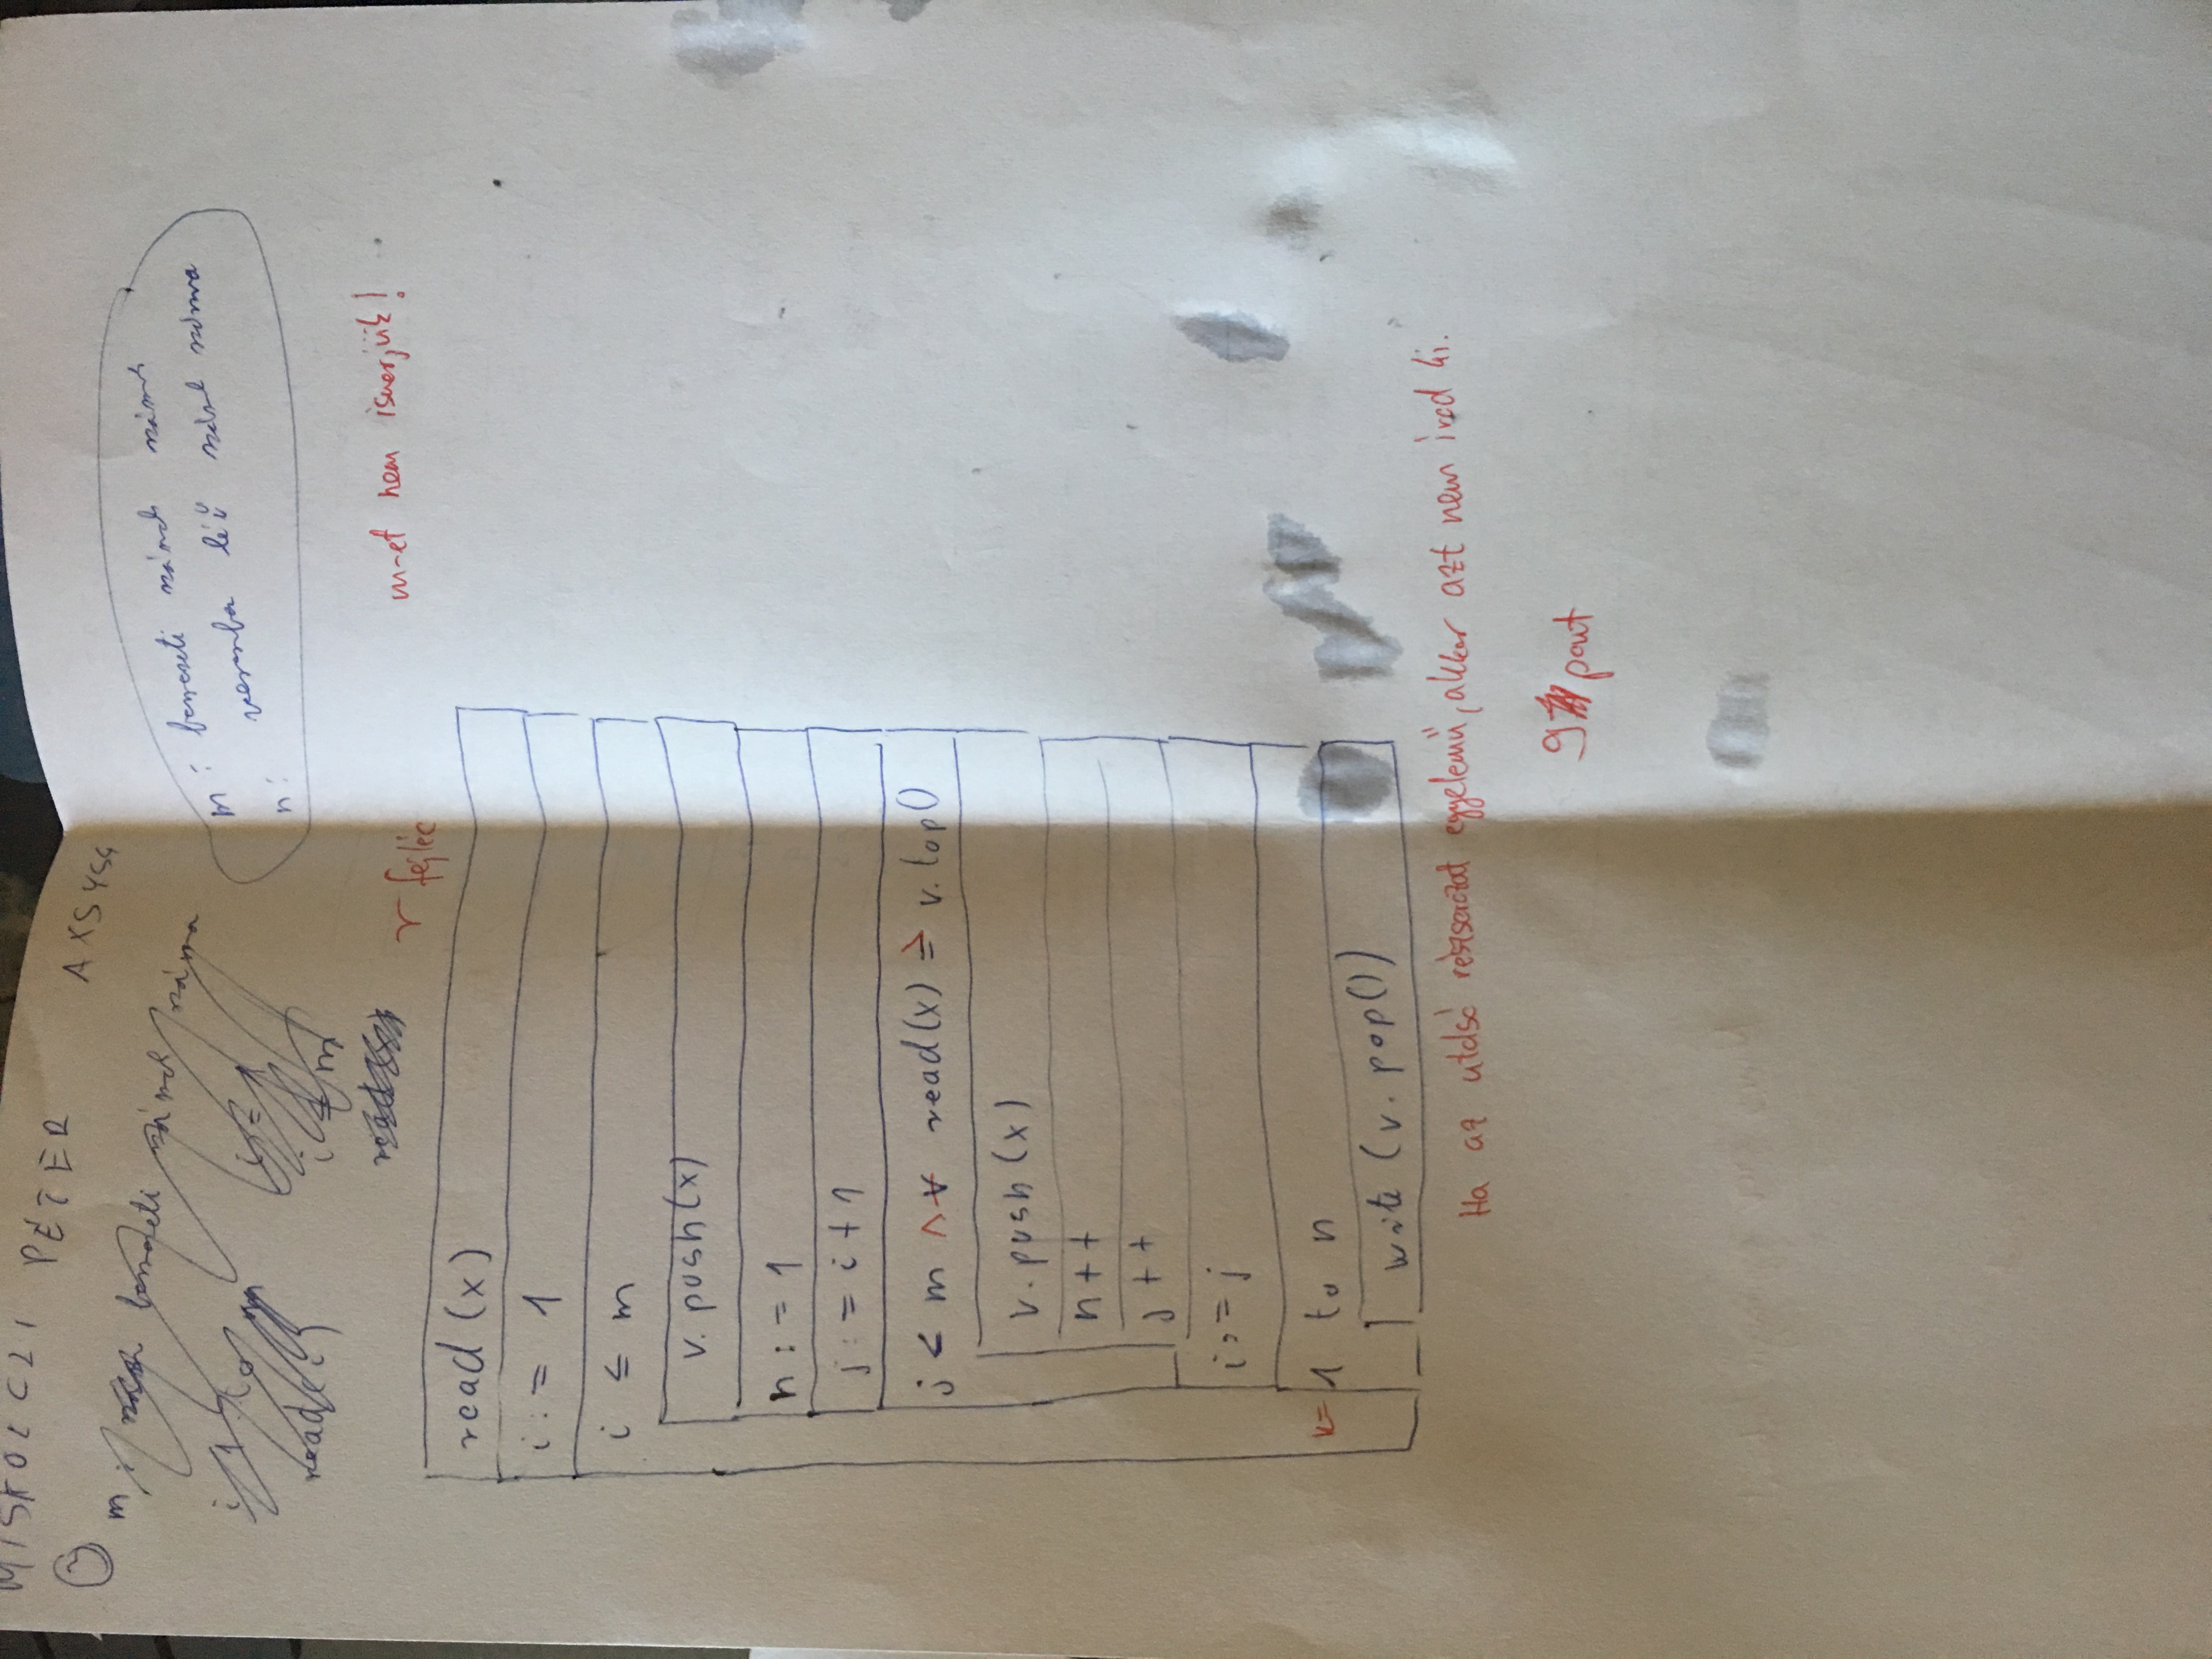 MISKOLCZI PÉTER AXSYS4
3
m: bemeneti számok száma
i 1 to m
read(i)
i=1
i ≤ m
m: bemeneti számok száma
n: veremba lévő számok száma
m-et nem ismerjük!
r fejléc
read (x)
i := 1
i ≤ m
v. push(x)
n := 1
j := i + 1
j < m ∧ read(x) ≥ v. top()
v. push (x)
n + +
j + +
i := j
k= 1 to n
write (v. pop())
Ha az utolsó részsorozat egyelemű, akkor azt nem írod ki.
9 pont